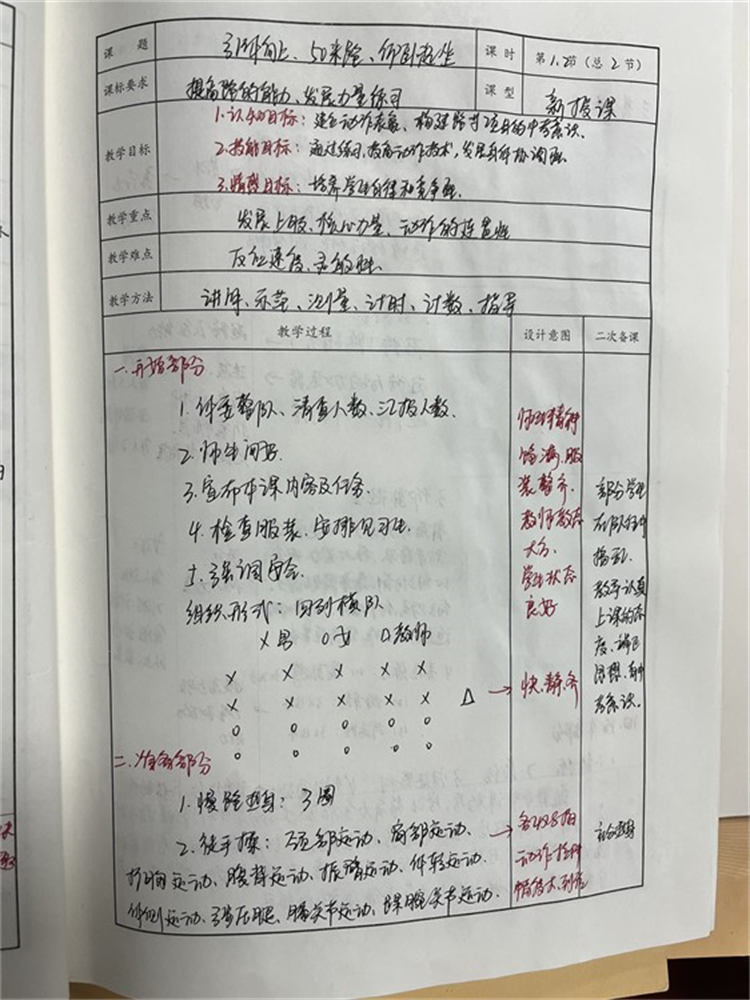 课题 引体向上、50米跑、仰卧起坐 课时 第1.2节(总2节)
课标要求 提高跑的能力、发展力量练习 课型 新授课
教学目标 1.认知目标:建立动作表象、构建跑步项目的中考意识。
2.技能目标:通过练习,提高动作技术,发展身体协调性。
3.情感目标:培养学生自律和竞争性。
教学重点 发展上肢、核心力量、动作的连贯性
教学难点 反应速度、灵敏性.
教学方法 讲解、示范、测量、计时、计数、指导
教学过程 设计意图 二次备课
一.开始部分
1.体委整队、清查人数、汇报人数.
2.师生问好.
3.宣布本课内容及任务.
4.检查服装、安排见习生.
5.强调安全.
组织形式:四列横队
×男 ○女 △教师
× × × × ×
× × × × × △
○ ○ ○ ○ ○
○ ○ ○ ○ ○
二.准备部分
1.慢跑热身:3圈
2.徒手操:颈部运动、肩部运动、
扩胸运动、腹背运动、振臂运动、体转运动.
体侧运动、弓步压腿、膝关节运动、踝腕关节运动.
师生精神
饱满.服
装整齐.
教师教态
大方.
学生状态
良好
→快.静.齐
→
动作
部分学生
在队伍中
教育认真
上课的态
度、
意识。
热身